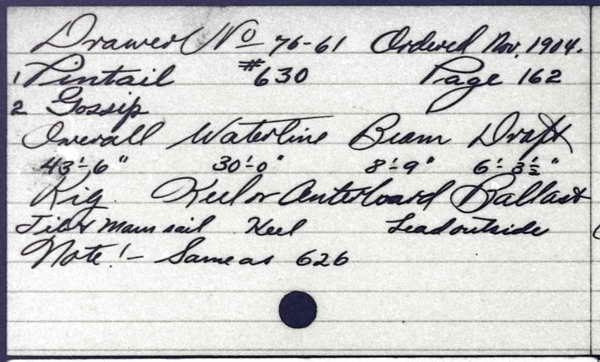 Drawer No 76-61 Ordered Nov. 1904.
1 Pintail #630 Page 162
2 Gossip
Overall Waterline Beam Draft
43'-6" 30'-0" 8'-9" 6'-3½"
Rig Keel or Centerboard Ballast
Jib & Main sail Keel Lead outside
Note!- Same as 626